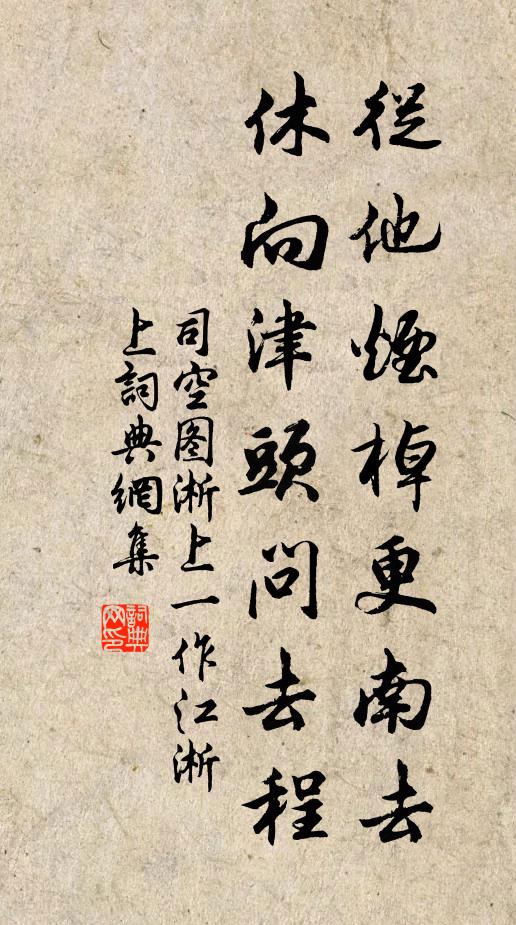 從他煙棹更南去
休向津頭問去程
司空图淅上一作江淅
上詞典網集
詞典网印